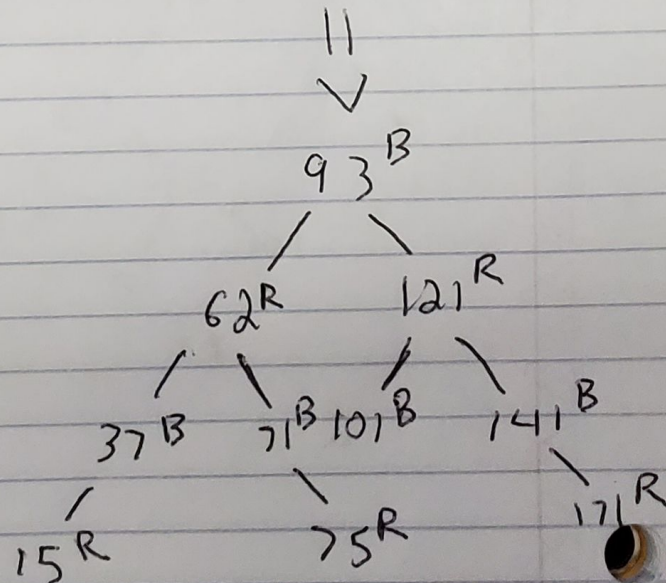 93 B
62 R 121 R
37 B 71 B 101 B 141 B
15 R 75 R 171 R